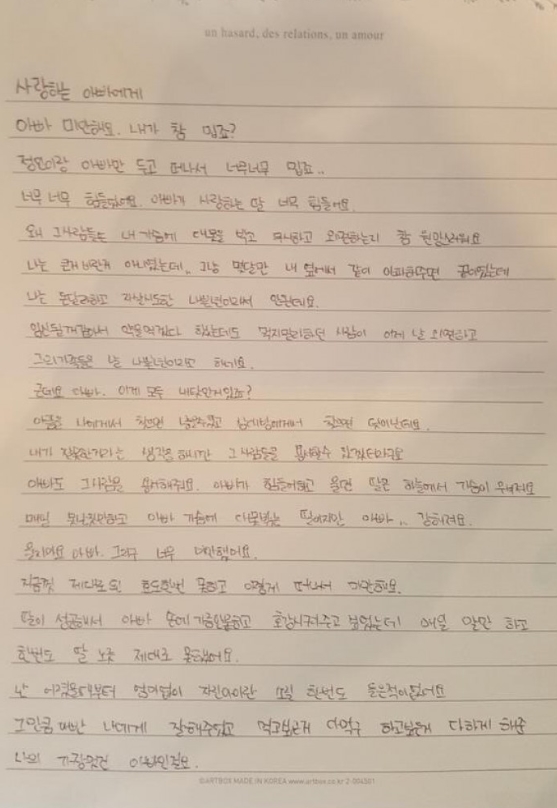 un hasard, des relations, un amour
사랑하는 아빠에게
아빠 미안해요. 내가 참 밉죠?
아빠만 두고 떠나서 너무너무 밉죠..
너무 너무 힘들었어요. 아빠가 사랑하는 딸 너무 힘들어요.
왜 그사람들은 내 가슴에 대못을 박고 외면하는지 참 원망스러워요
나는 큰걸 바란게 아니었는데.. 그냥 몇달만 내 옆에서 같이 아파해주면 끝이었는데
나는 돈달라하고 자살시도한 나쁜년이라서 안된데요.
임신될까겁나서 약을먹겠다 하는데도 먹지말라하던 사람이 이제 날 외면하고
그의가족들은 날 나쁜년이라고 해네요.
근데요 아빠. 이게 모두 내탓인거있죠?
아픔은 나에게서 찾으면
내가 잘못한거라는 생각을 하지만 그사람들을 용서할수 없겠더라구요
아빠도 그사람을 아빠가 힘들어하고 울면 딸은 하늘에서 가슴이 무너져요
매일 못난짓만하고 아빠 가슴에 대못박는 딸이지만 아빠.. 강해져요.
울지마요 아빠. 그리구 너무 미안했어요.
지금껏 제대로된 효도한번 못하고 이렇게 떠나서 미안해요.
딸이 성공해서 아빠 호강시켜주고 싶었는데 매일 말만 하고
한번도 딸 노릇 제대로 못했어요.
난 어렸을때부터 엄마없이 자란아이란 소릴 한번도 들은적이없어요
그만큼 아빤 나에게 잘해주었고 먹고싶은거 다먹구 하고싶은거 다하게 해준
나의 가장멋진 아빠인걸요.
©ARTBOX MADE IN KOREA www.artbox.co.kr